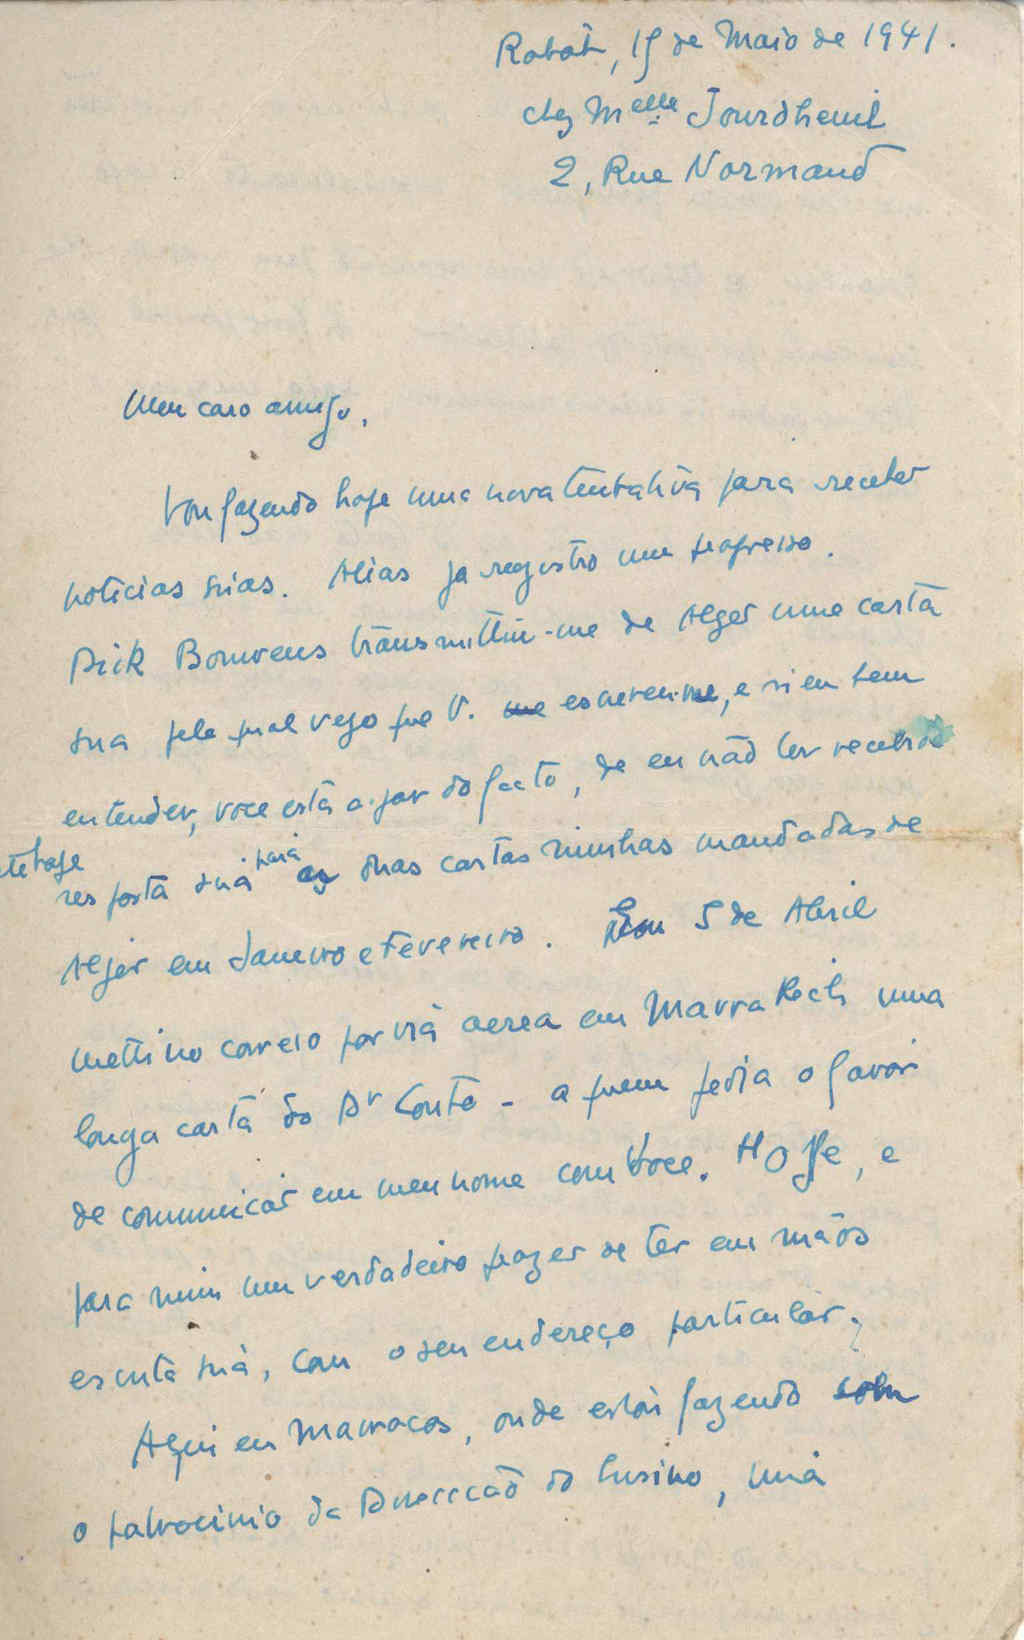 Rabat, 15 de Maio de 1941.
chez Melle Jourdheuil
2, Rue Normand
Meu caro amigo,
Vou fazendo hoje uma nova tentativa para receber
noticias suas. Alias ja registro um progresso.
Dick Bouwens transmittiu-me de Alger uma carta
sua pela qual vejo que V. me escreveu-me, e si eu bem
entender, voce está a par do facto, de eu não ter recebido
ate hoje
resposta sua para as duas cartas minhas mandadas de
Alger em Janeiro e Fevereiro. Em 5 de Abril
metti no correio por via aerea em Marrakech uma
longa carta ao Dr Couto - a quem pedia o favor
de comunicar em meu nome com voce. Hoje, e
para mim um verdadeiro prazer de ter em mãos
escrita sua, com o seu endereço particular.
Aqui em Marrocos, onde estou fazendo sob
o patrocinio da Direcção do Ensino, uma